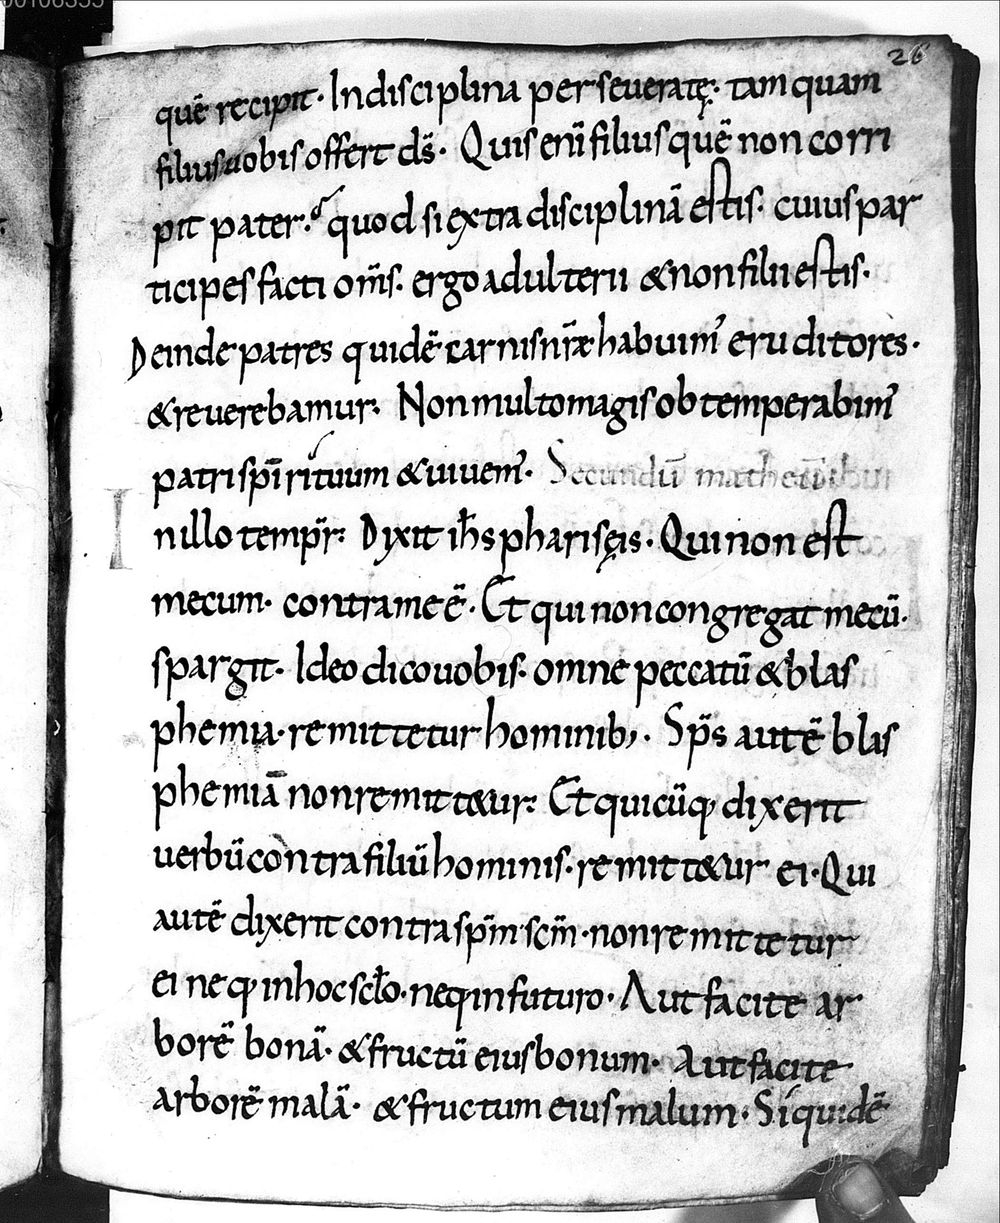 26
quē recipit· In disciplina perseueratę· tam quam
filius uobis offert ds̄· Quis enī filius quē non corri
pit pater· quod si extra disciplinā estis· cuius par
ticipes facti om̄s· ergo adulterii & non filii estis·
Deinde patres quidē carnis nr̄æ habuim' eruditores·
& reuerebamur· Non multo magis obtemperabim'
patri spīrituum & uiuem'· Secundū matheū
In illo tempr̄· Dixit ih̄s phariseįs· Qui non est
mecum· contra me ē· Et qui non congregat mecū·
spargit· Ideo dico uobis· omne peccatū & blas
phemia· remittetur hominib;· Sp̄s autē blas
phemiā non remitt&ur· Et quicūq; dixerit
uerbū contra filiū hominis· remitt&ur ei· Qui
autē dixerit contra sp̄m sc̄m· non remittetur
ei neq; in hoc scło· neq; in futuro· Aut facite ar
borē bonā· & fructū eius bonum· Aut facite
arborē malā· & fructum eius malum· Si quidē